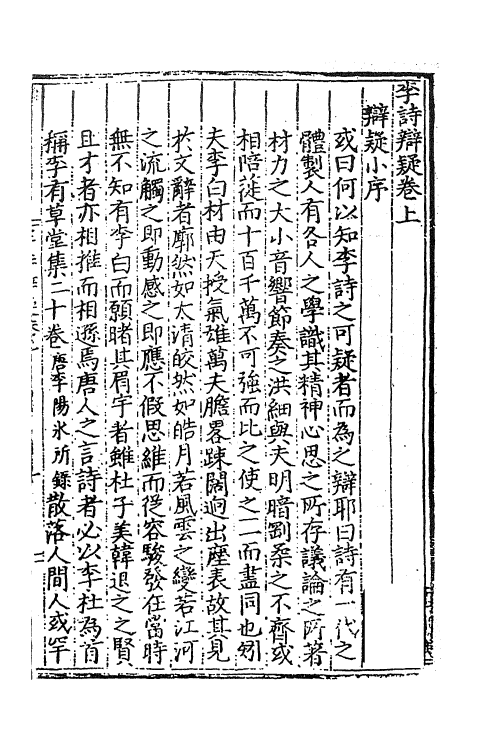 李詩辯疑卷上
辯疑小序
或曰何以知李詩之可疑者而為之辯耶曰詩有一代之
體製人有各人之學識其精神心思之所存議論之所著
材力之大小音響節奏之洪細與夫明暗剛柔之不齊或
相陪徙而十百千萬不可強而比之使之一一而盡同也矧
夫李白材由天授氣雄萬夫膽畧踈闊逈出塵表故其見
於文辭者廓然如太清皎然如皓月若風雲之變若江河
之流觸之即動感之即應不假思維而從容駿發在當時
無不知有李白而願睹其眉宇者雖杜子美韓退之之賢
且才者亦相推而相遜焉唐人之言詩者必以李杜為首
稱李有草堂集二十卷唐李陽氷所錄散落人間人或罕